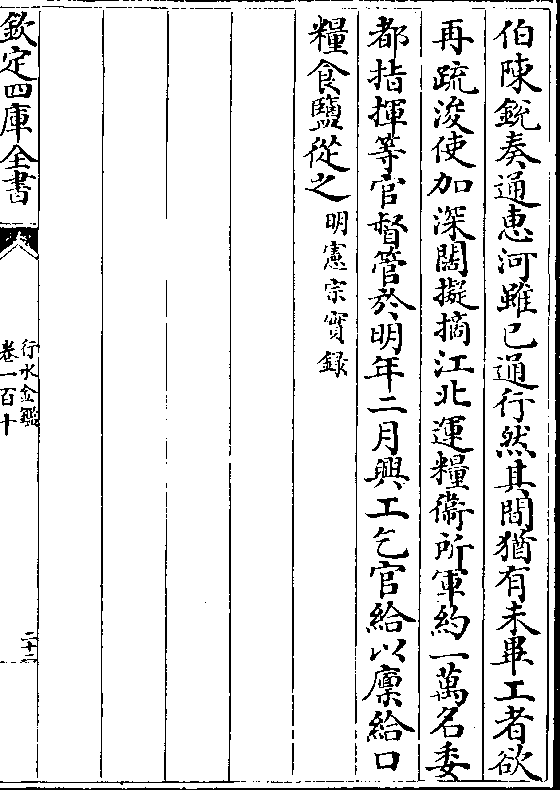 伯陳鋭奏通惠河雖已通行然其間猶有未畢工者欲
再疏浚使加深闊擬摘江北運糧衞所軍約一萬名委
都指揮等官督管於明年二月興工乞官給以廪給口
糧食鹽從之明憲宗實録
欽定四庫全書
行水金鑑
卷一百十
二十二